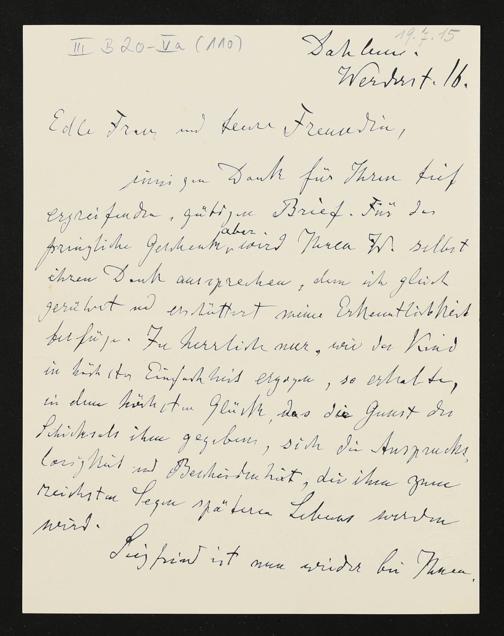 III B 20-Va (110)
19.7.15
Dahlem.
Werderst. 16.
Edle Frau und teure Freundin,
innigen Dank für Ihren tief
ergreifenden, gütigen Brief. Für das
Geschenk, aber wird Ihnen W. selbst
ihren Dank aussprechen, dem ich gleich
gerührt und erschüttert meine Erkenntlichkeit
herrlich nur, wie das Kind
in höchster Einfachheit erzogen, so erhalten,
in dem höchsten Glück, das die Gunst des
Schicksals ihm gegeben, sich die Anspruchs-
losigkeit und Bescheidenheit, die ihm zum
reichsten Segen späteren Lebens werden
wird.
Siegfried ist nun wieder bei Ihnen.